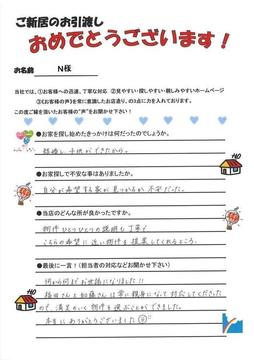 ご新居のお引渡し
おめでとうございます！
お名前 N様
当社では、①お客様への迅速、丁寧な対応 ②見やすい・探しやすい・親しみやすいホームページ
③《お客様の声》を常に意識したお店造り、の3点に力を入れております。
この度ご縁を頂いたお客様の"声"をお聞かせ下さい！
●お家を探し始めたきっかけは何だったのでしょうか。
結婚し、子供ができたから。
●お家探しで不安な事はありましたか。
自分が希望する家が見つかるか不安だった。
●当店のどんな所が良かったですか。
物件ひとつひとつの説明も丁寧で
こちらの希望に近い物件を提案してくれるところ。
●最後に一言！（担当者の対応などお聞かせ下さい）
何から何までお世話になりました!!
さんと加藤さんには常に親身になって対応してくださった
ので、満足のいく物件を選ぶことができました。
本当にありがとうございました